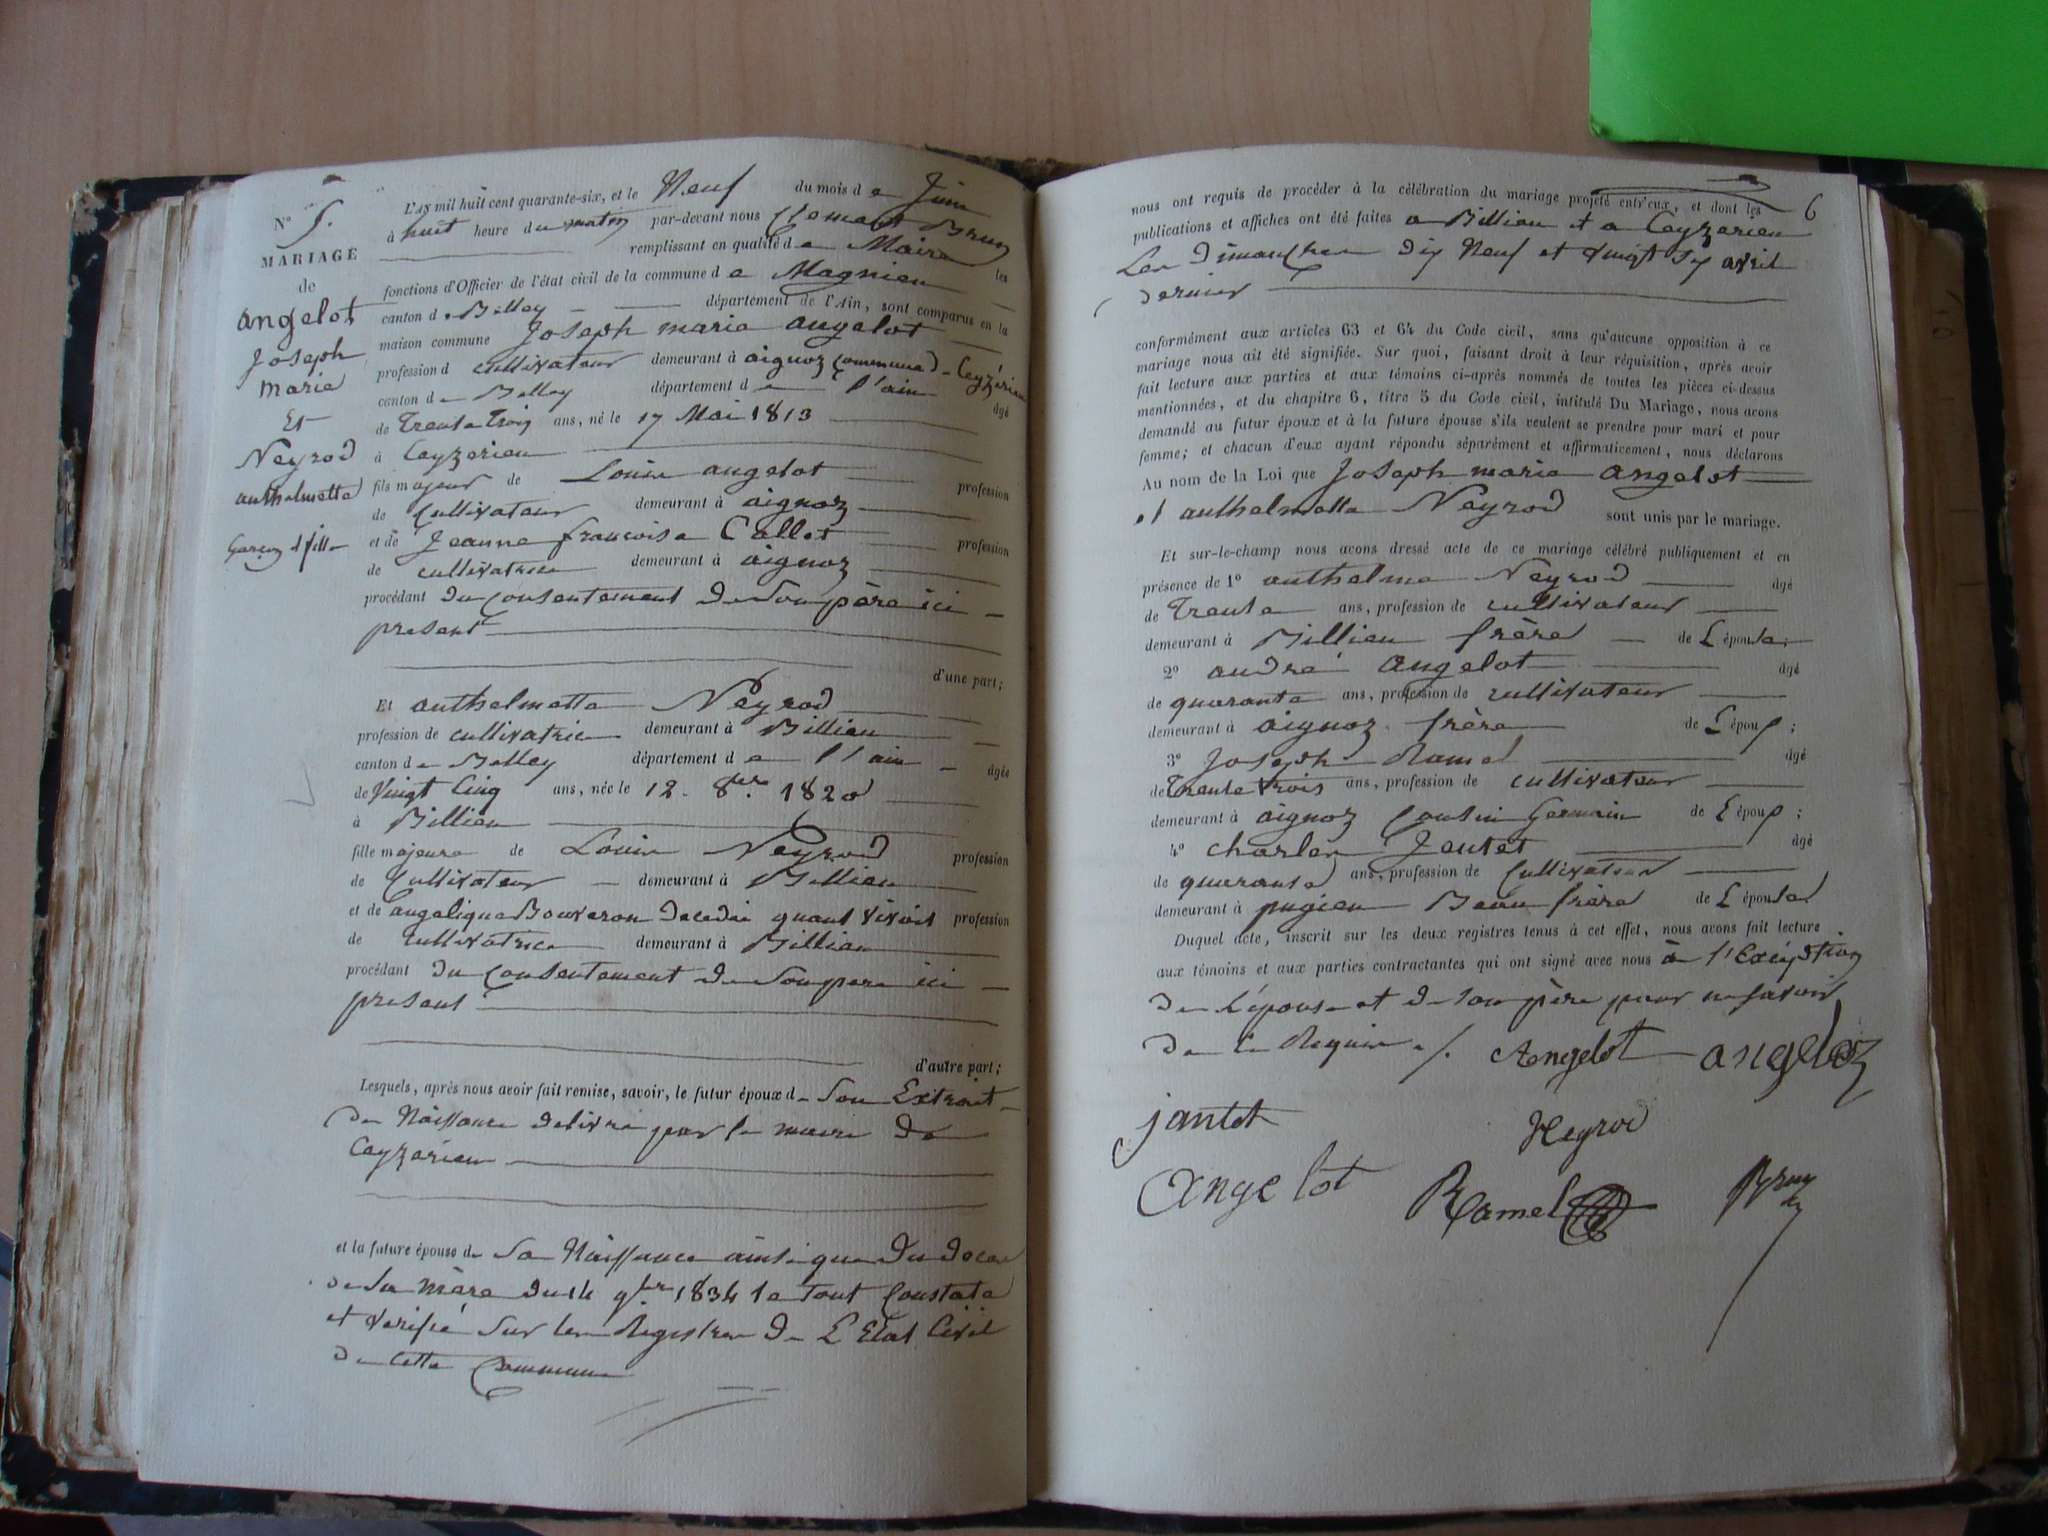 N° 5.
MARIAGE
de
angelot
Joseph
marie
Et
Neyrod
anthelmette
Garçon et fille
L'AN mil huit cent quarante-six, et le Neuf du mois de Juin
à huit heure du matin par-devant nous Clement Brun
remplissant en qualité de Maire les
fonctions d'Officier de l'état civil de la commune de Magnieu
canton de Belley département de l'Ain, sont comparus en la
maison commune Joseph marie angelot
profession d cultivateur demeurant à aignoz commune de Ceyzerieu
canton de Belley département de l'ain âgé
de Trente Trois ans, né le 17 Mai 1813
à Ceyzerieu
fils majeur de Louis angelot profession
de Cultivateur demeurant à aignoz
et de Jeanne francoise Callet profession
de cultivatrice demeurant à aignoz
procédant du Consentement de Son père ici
présent
d'une part;
Et anthelmette Neyrod
profession de cultivatrice demeurant à Billieu
canton de Belley département de l'ain âgée
de Vingt Cinq ans, née le 12 8bre 1820
à Billieu
fille majeure de Louis Neyrod profession
de Cultivateur demeurant à Billieu
et de angelique Bouveron décédée quant vivoit profession
de cultivatrice demeurant à Billieu
procédant du Consentement de Son pere ici
present
d'autre part;
Lesquels, après nous avoir fait remise, savoir, le futur époux de Son Extrait
de Naissance délivré par le maire de
Ceyzerieu
et la future épouse de Sa Naissance ainsi que du deces
de Sa mère du 14 9bre 1834 le tout Constaté
et verifié Sur les Registres de L'Etat Civil
de cette Commune
6
nous ont requis de procéder à la célébration du mariage projeté entr'eux, et dont les
publications et affiches ont été faites a Billieu et a Ceyzerieu
Les dimanches dix Neuf et vingt Six avril
dernier
conformément aux articles 63 et 64 du Code civil, sans qu'aucune opposition à ce
mariage nous ait été signifiée. Sur quoi, faisant droit à leur réquisition, après avoir
fait lecture aux parties et aux témoins ci-après nommés de toutes les pièces ci-dessus
mentionnées, et du chapitre 6, titre 5 du Code civil, intitulé Du Mariage, nous avons
demandé au futur époux et à la future épouse s'ils veulent se prendre pour mari et pour
femme; et chacun d'eux ayant répondu séparément et affirmativement, nous déclarons
Au nom de la Loi que Joseph marie angelot
et anthelmette Neyrod sont unis par le mariage.
Et sur-le-champ nous avons dressé acte de ce mariage célébré publiquement et en
présence de 1° anthelme Neyrod âgé
de Trente ans, profession de cultivateur
demeurant à Billieu frère de L'épouse;
2° andré angelot âgé
de quarante ans, profession de cultivateur
demeurant à aignoz frère de L'époux;
3° Joseph Ramel âgé
de Trente trois ans, profession de cultivateur
demeurant à aignoz Cousin Germain de L'époux;
4° charles Jentet âgé
de quarante ans, profession de Cultivateur
demeurant à pugieu Beau frère de L'épouse
Duquel acte, inscrit sur les deux registres tenus à cet effet, nous avons fait lecture
aux témoins et aux parties contractantes qui ont signé avec nous à l'Exception
de L'épouse et de Son père pour ne savoir
de ce Requis ./. Angelot angeloz
jantet Neyrod
angelot Ramel Brun